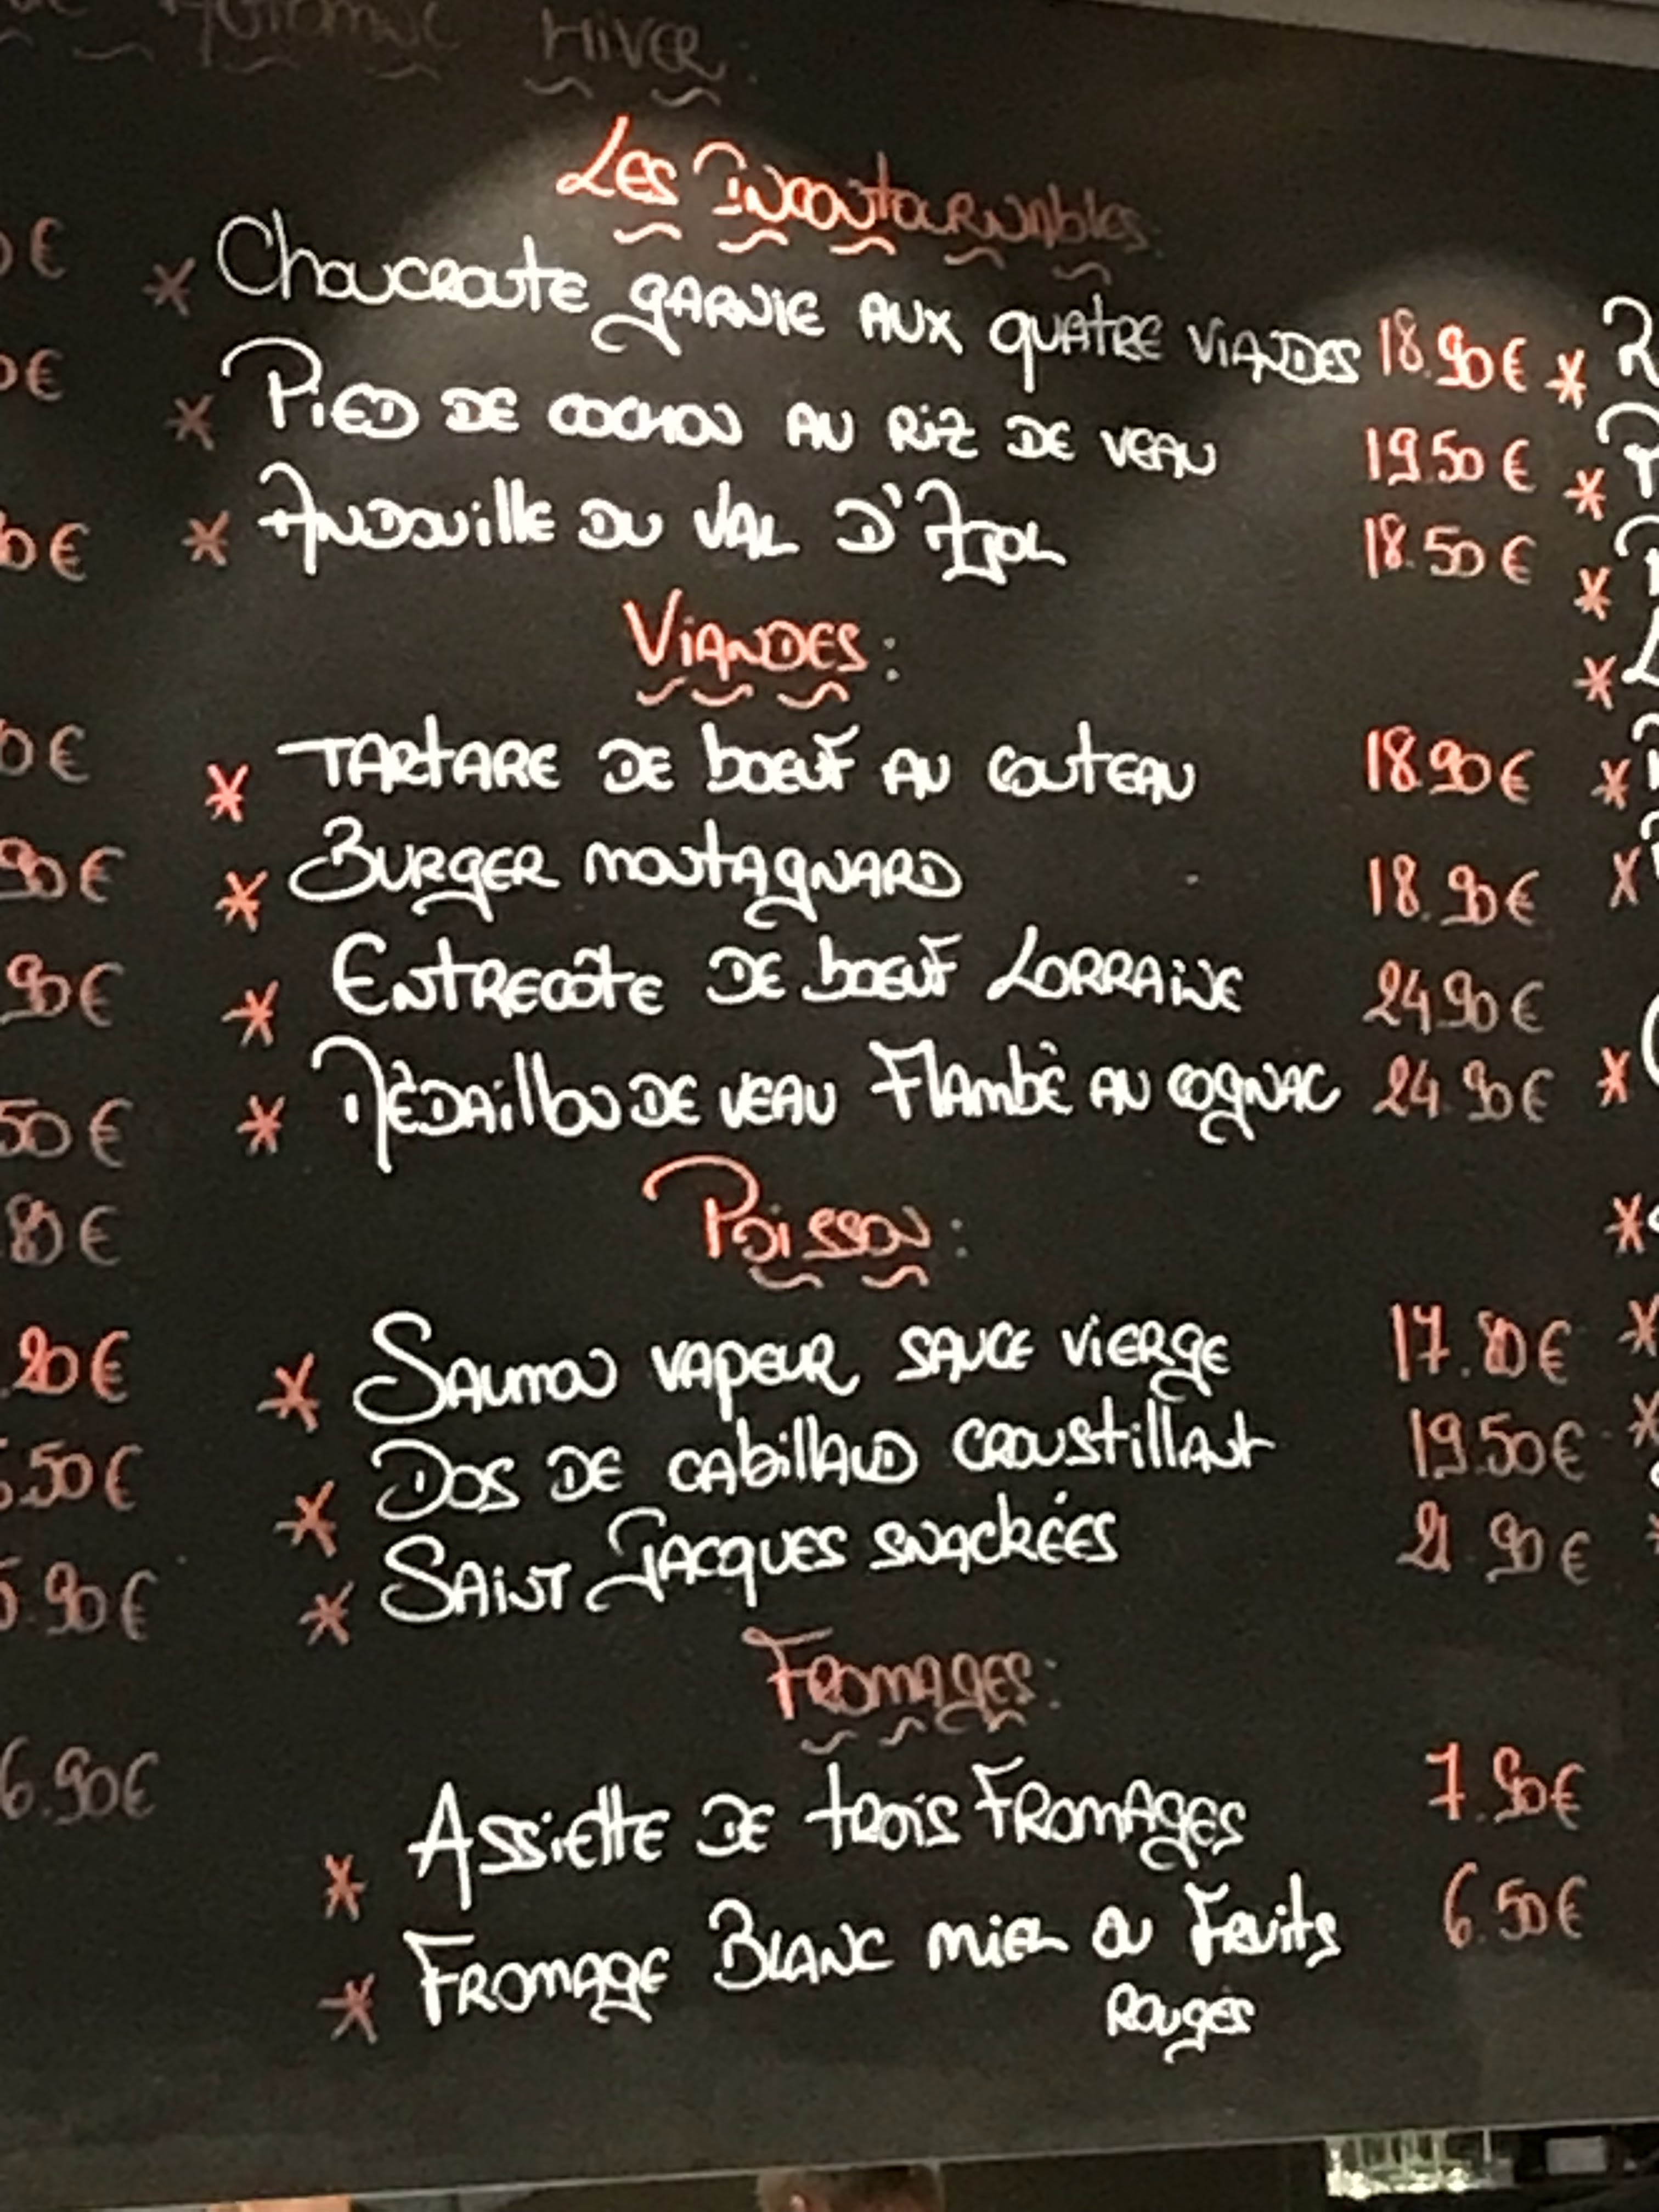 Automne Hiver:
Les Incontournables:
* Choucroute garnie aux quatre viandes 18.90€
* Pied de cochon au riz de veau 19.50€
* Andouille du Val d'Ajol 18.50€
Viandes:
* Tartare de boeuf au couteau 18.90€
* Burger montagnard 18.90€
* Entrecôte de boeuf Lorraine 24.90€
* Médaillon de veau Flambé au cognac 24.90€
Poisson:
* Saumon vapeur sauce vierge 17.80€
* Dos de cabillaud croustillant 19.50€
* Saint Jacques snackées 21.90€
Fromages:
* Assiette de trois Fromages 7.90€
* Fromage Blanc miel ou Fruits 6.50€
Rouges